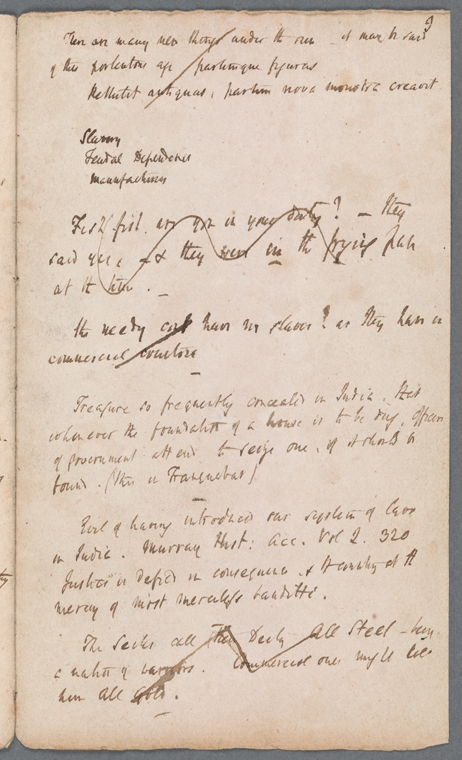 9
There are many new things under the sun it may be said
of this portentous age partimque figuras
Rettulit antiquas, partim nova monstra creavit
Slavery
Feudal Dependence
Manufactures
Fish! fish are you in your duty? — They
said yes, & they were in the frying pan
at the time.
the needy have no slaves? as they have in
commercial countries
Treasure so frequently concealed in India. That
whenever the foundation of a house is to be dug, officers
of government attend to seize one, if it should be
found. (this in Tranquebar)
Evil of having introduced our system of laws
in India. Murray Hist: Acc. Vol 2. 320
Justice is defied in consequence & the country at the
mercy of most merciless banditti.
The Seiks call their Deity All Steel – being
a nation of warriors. Commercial one might call
him All Gold.